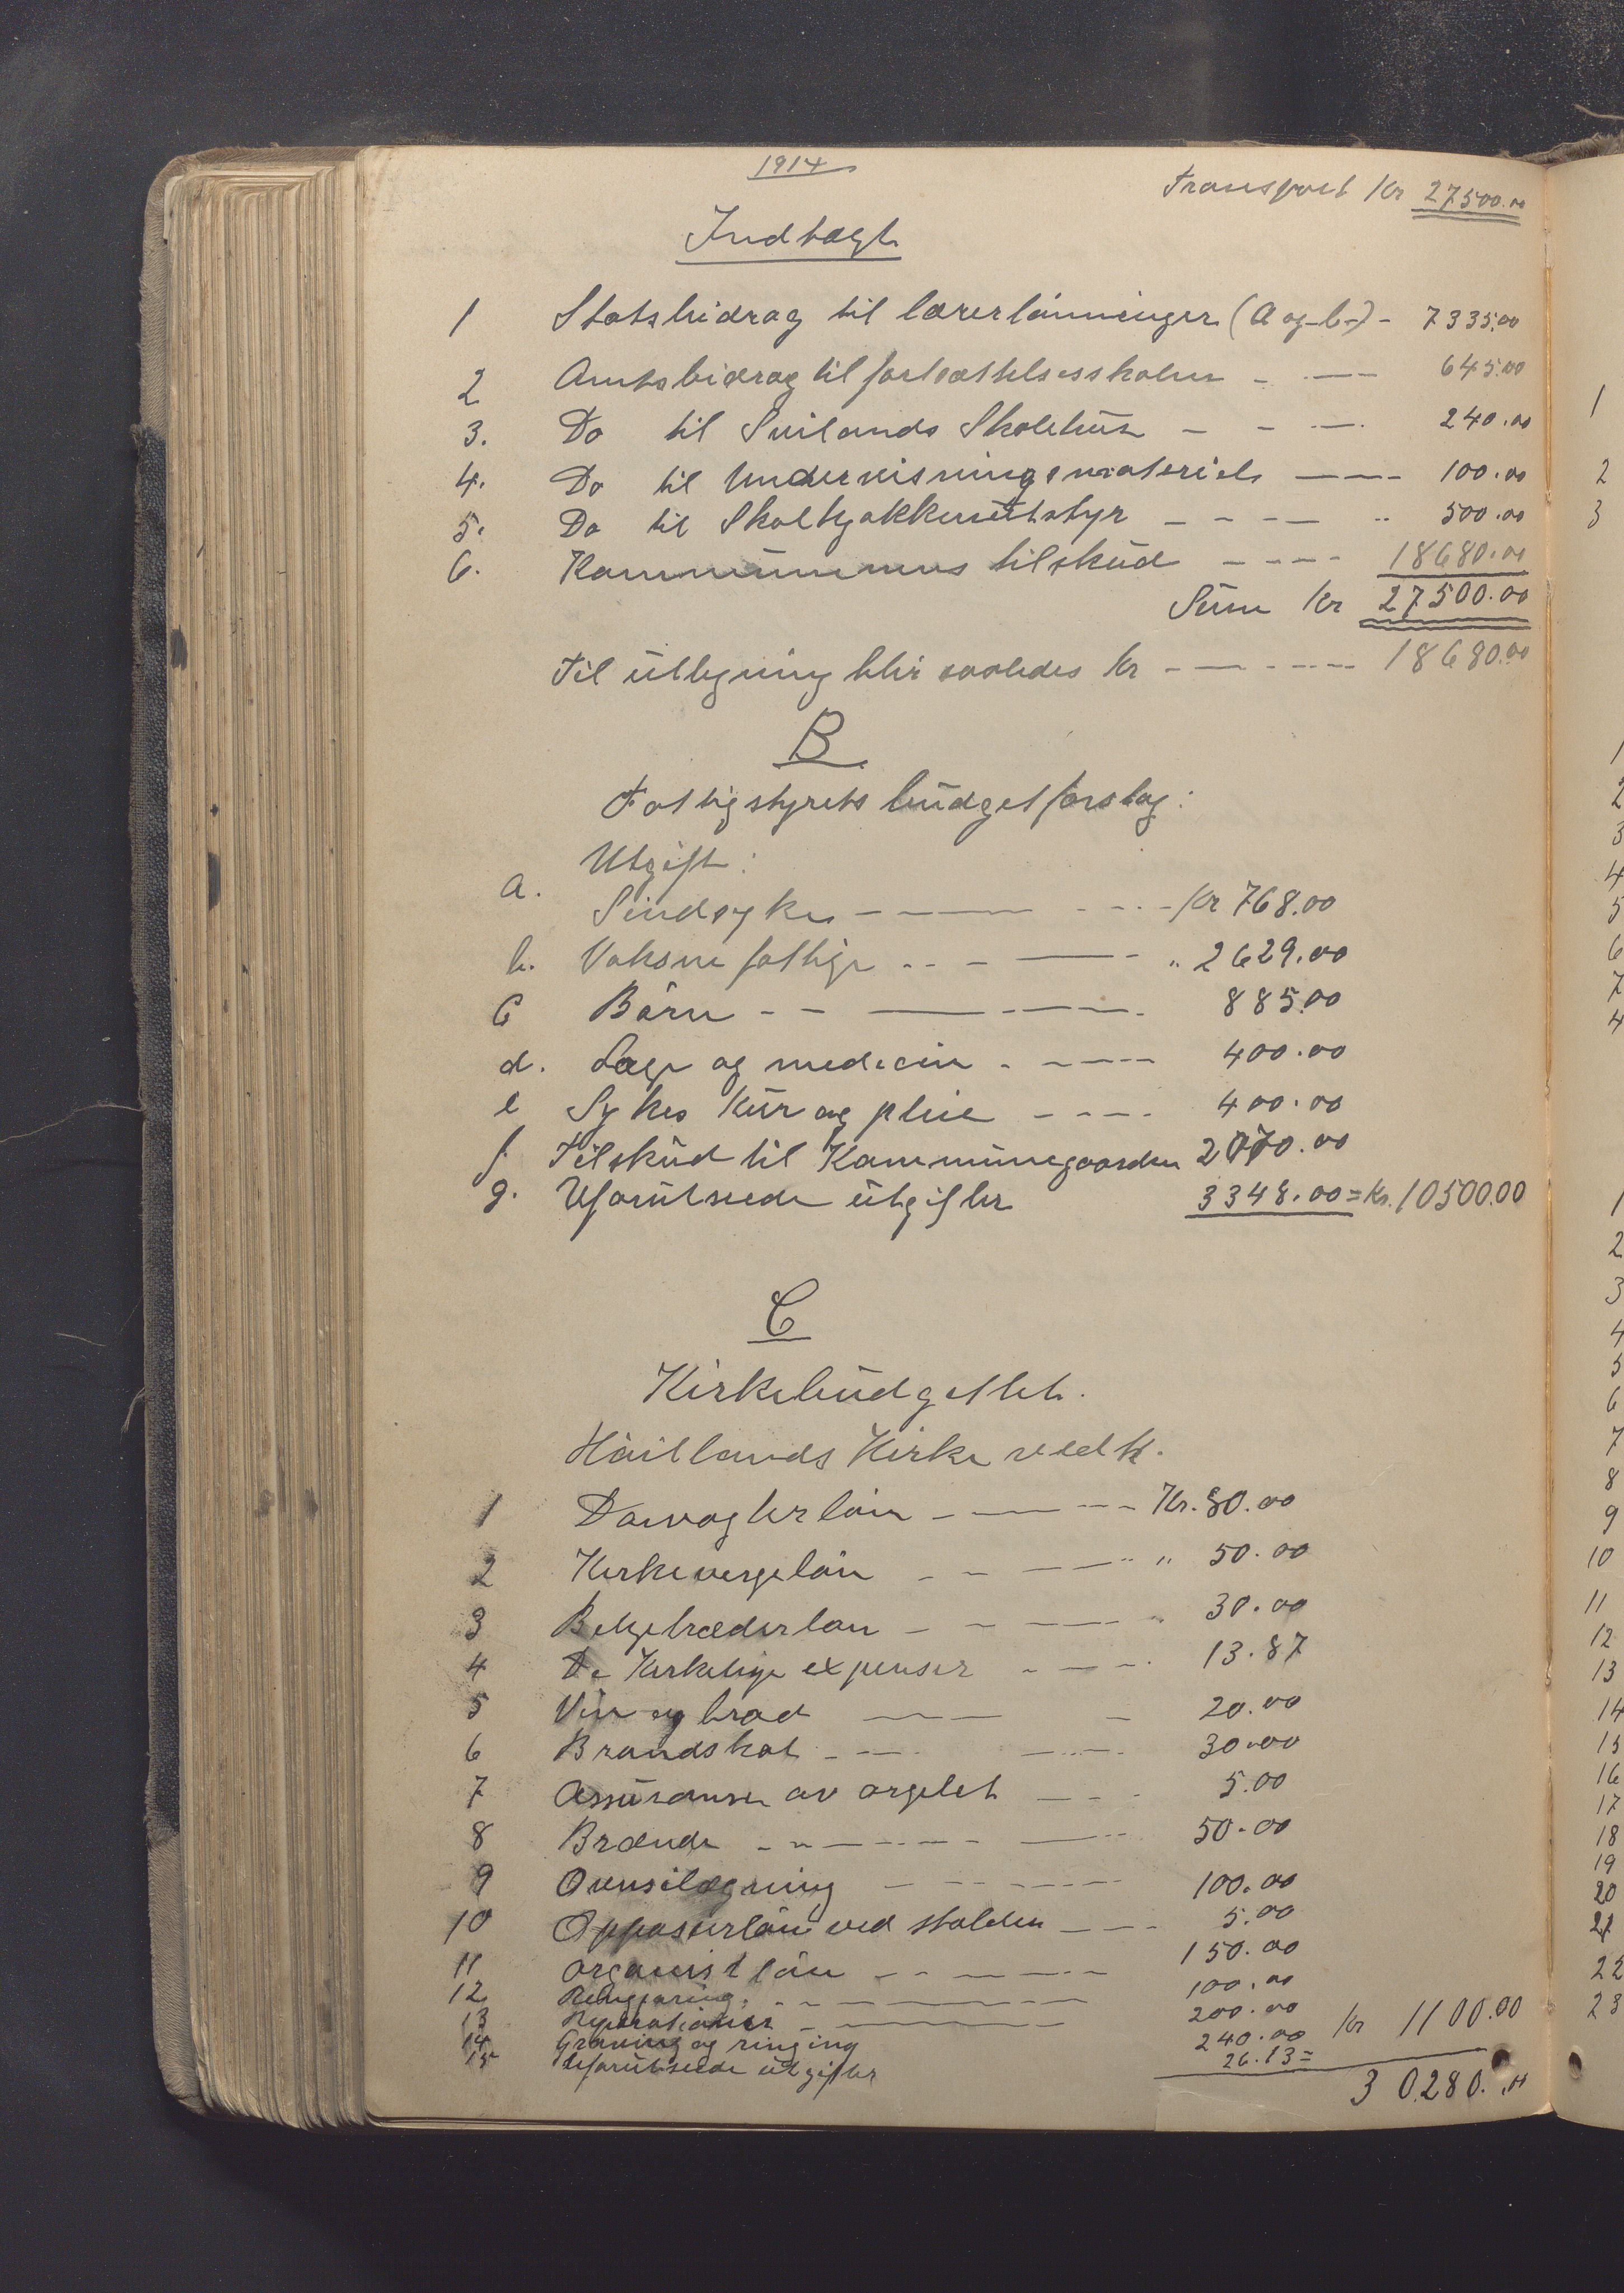 1914
Transport Kr 27500.00
Indtægt
1 Statsbidrag til lærerlønninger (A og b-) - 7335.00
2 Amtsbidrag til fortsættelsesskolen - - — 645.00
3. Do til Svilands Skolehus - - - — 240.00
4. Do til Undervisningsmateriels — — 100.00
5. Do til Skolekjøkkenutstyr - - - — " 500.00
6. Kommunenens tilskud - - - - 18680.00
Sum Kr 27500.00
Til utligning blir saaledes Kr - — - - - 18680.00
B
Fattigstyrets budgetforslag:
Utgift:
a. Sindsyke - - — - - - Kr 768.00
b. Voksne fattige - - - — - " 2629.00
c Børn - - — - — - 885.00
d. Læge og medicin - - — - 400.00
e Sykes kur og pleie - - - - 400.00
f. Tilskud til Kommunegaarden 2070.00
g. Uforutseede utgifter 3348.00 = Kr. 10500.00
C
Kirkebudgettet.
Høilands Kirke vedk.
1 Dørvagterløn - — - - - Kr. 80.00
2 Kirkevergeløn - - — - " 50.00
3 Belgetræderløn - - — - 30.00
4 De Kirkelige expenser - - — - 13.87
5 Vin og brød — — - 20.00
6 Brandskat - - — - — - 30.00
7 Assuranse av orgelet — - - 5.00
8 Brænde - - — - - — - 50.00
9 Ovnsilægning — - - - - 100.00
10 Oppasserløn ved stalden — - - 5.00
11 Organistløn - - — - — 150.00
12 Rengjøring. - - — — 100.00
13 Reperationer - — — 200.00
14 Graving og ringing 240.00
15 Uforutseede utgifter 26.13 = Kr 1100.00
30280.00
1
2
3
1
2
3
4
5
6
7
4
1
2
3
4
5
6
7
8
9
10
11
12
13
14
15
16
17
18
19
20
21
22
23